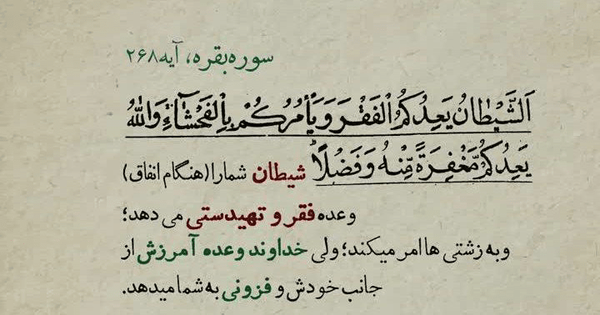 سوره بقره، آیه ۲۶۸
اَلشَّيْطَانُ يَعِدُكُمُ الْفَقْرَ وَ يَأْمُرُكُمْ بِالْفَحْشَاءِ وَاللّٰهُ
يَعِدُكُمْ مَّغْفِرَةً مِّنْهُ وَ فَضْلًا شیطان شما را (هنگام انفاق)
وعده فقر و تهیدستی می دهد؛
و به زشتی ها امر میکند؛ ولی خداوند وعده آمرزش از
جانب خودش و فزونی به شما میدهد.